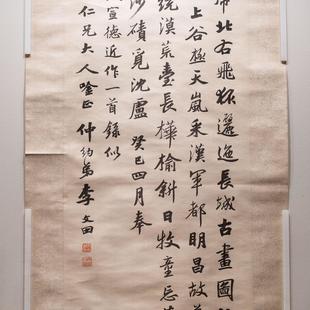 北右飛狐邐迤長城古畫圖
上谷極天嵐采漢軍都明昌故
漠荒臺長樺榆斜日牧童忘
沙磧覓沈盧 癸巳四月奉
宣德近作一首錄似
仁兄大人唫正 仲約弟李文田